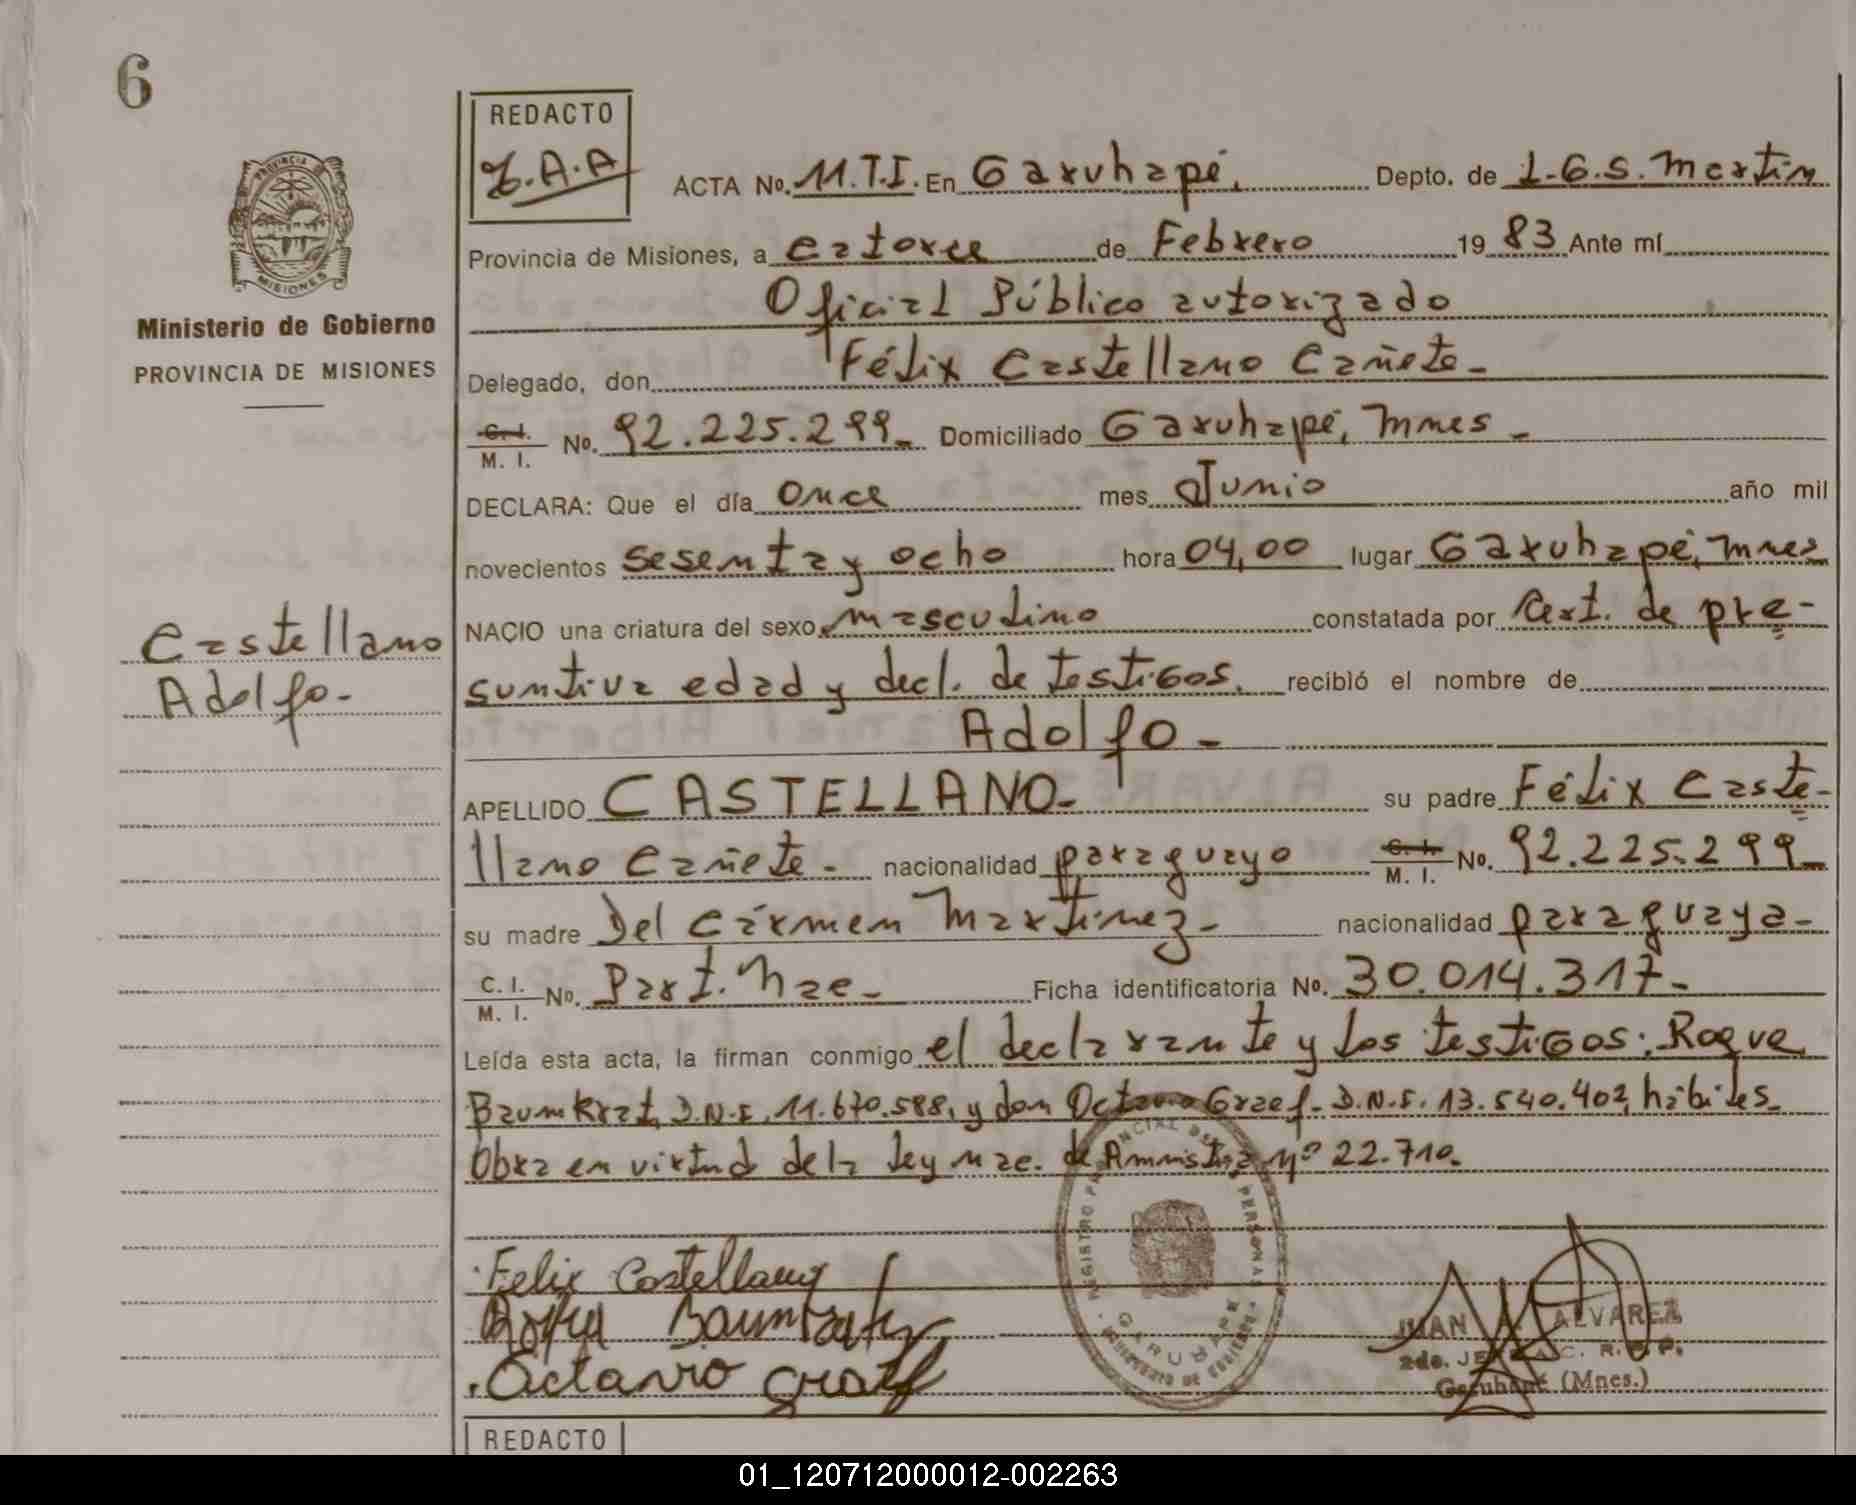 6
REDACTO
J.A.A
ACTA No. 11.T.I. En Garuhapé, Depto. de L.G.S. Martín
Provincia de Misiones, a catorce de Febrero 19 83 Ante mí
Oficial Público autorizado
Delegado, don Félix Castellano Cañete-
C. I. M. I. No. 92.225.299- Domiciliado Garuhapé, Mnes-
DECLARA: Que el día once mes Junio año mil
novecientos sesenta y ocho hora 04,00 lugar Garuhapé, Mnes
NACIO una criatura del sexo masculino constatada por Cert. de pre-
suntiva edad y decl. de testigos. recibió el nombre de
Adolfo-
APELLIDO CASTELLANO- su padre Félix Caste-
llano Cañete- nacionalidad paraguayo C. I. M. I. No. 92.225.299-
su madre Del Cármen Martínez- nacionalidad paraguaya-
C. I. M. I. No. Part. Nac- Ficha identificatoria No. 30.014.317-
Leída esta acta, la firman conmigo el declarante y los testigos: Roque
Baumkrat, D.N.I. 11.670.588, y don Octavio Graef- D.N.I. 13.540.402, hábiles-
Obra en virtud de la ley nac. de Amnistía nº 22.710.
Felix Castellano
Octavio Graef
Ministerio de Gobierno
PROVINCIA DE MISIONES
PROVINCIA
MISIONES
Castellano
Adolfo-
REGISTRO PROVINCIAL DE LAS PERSONAS
GARUHAPE
MINISTERIO DE GOBIERNO
JUAN A. ALVAREZ
2do. JEFE
Garuhapé (Mnes.)
REDACTO
01_120712000012-002263